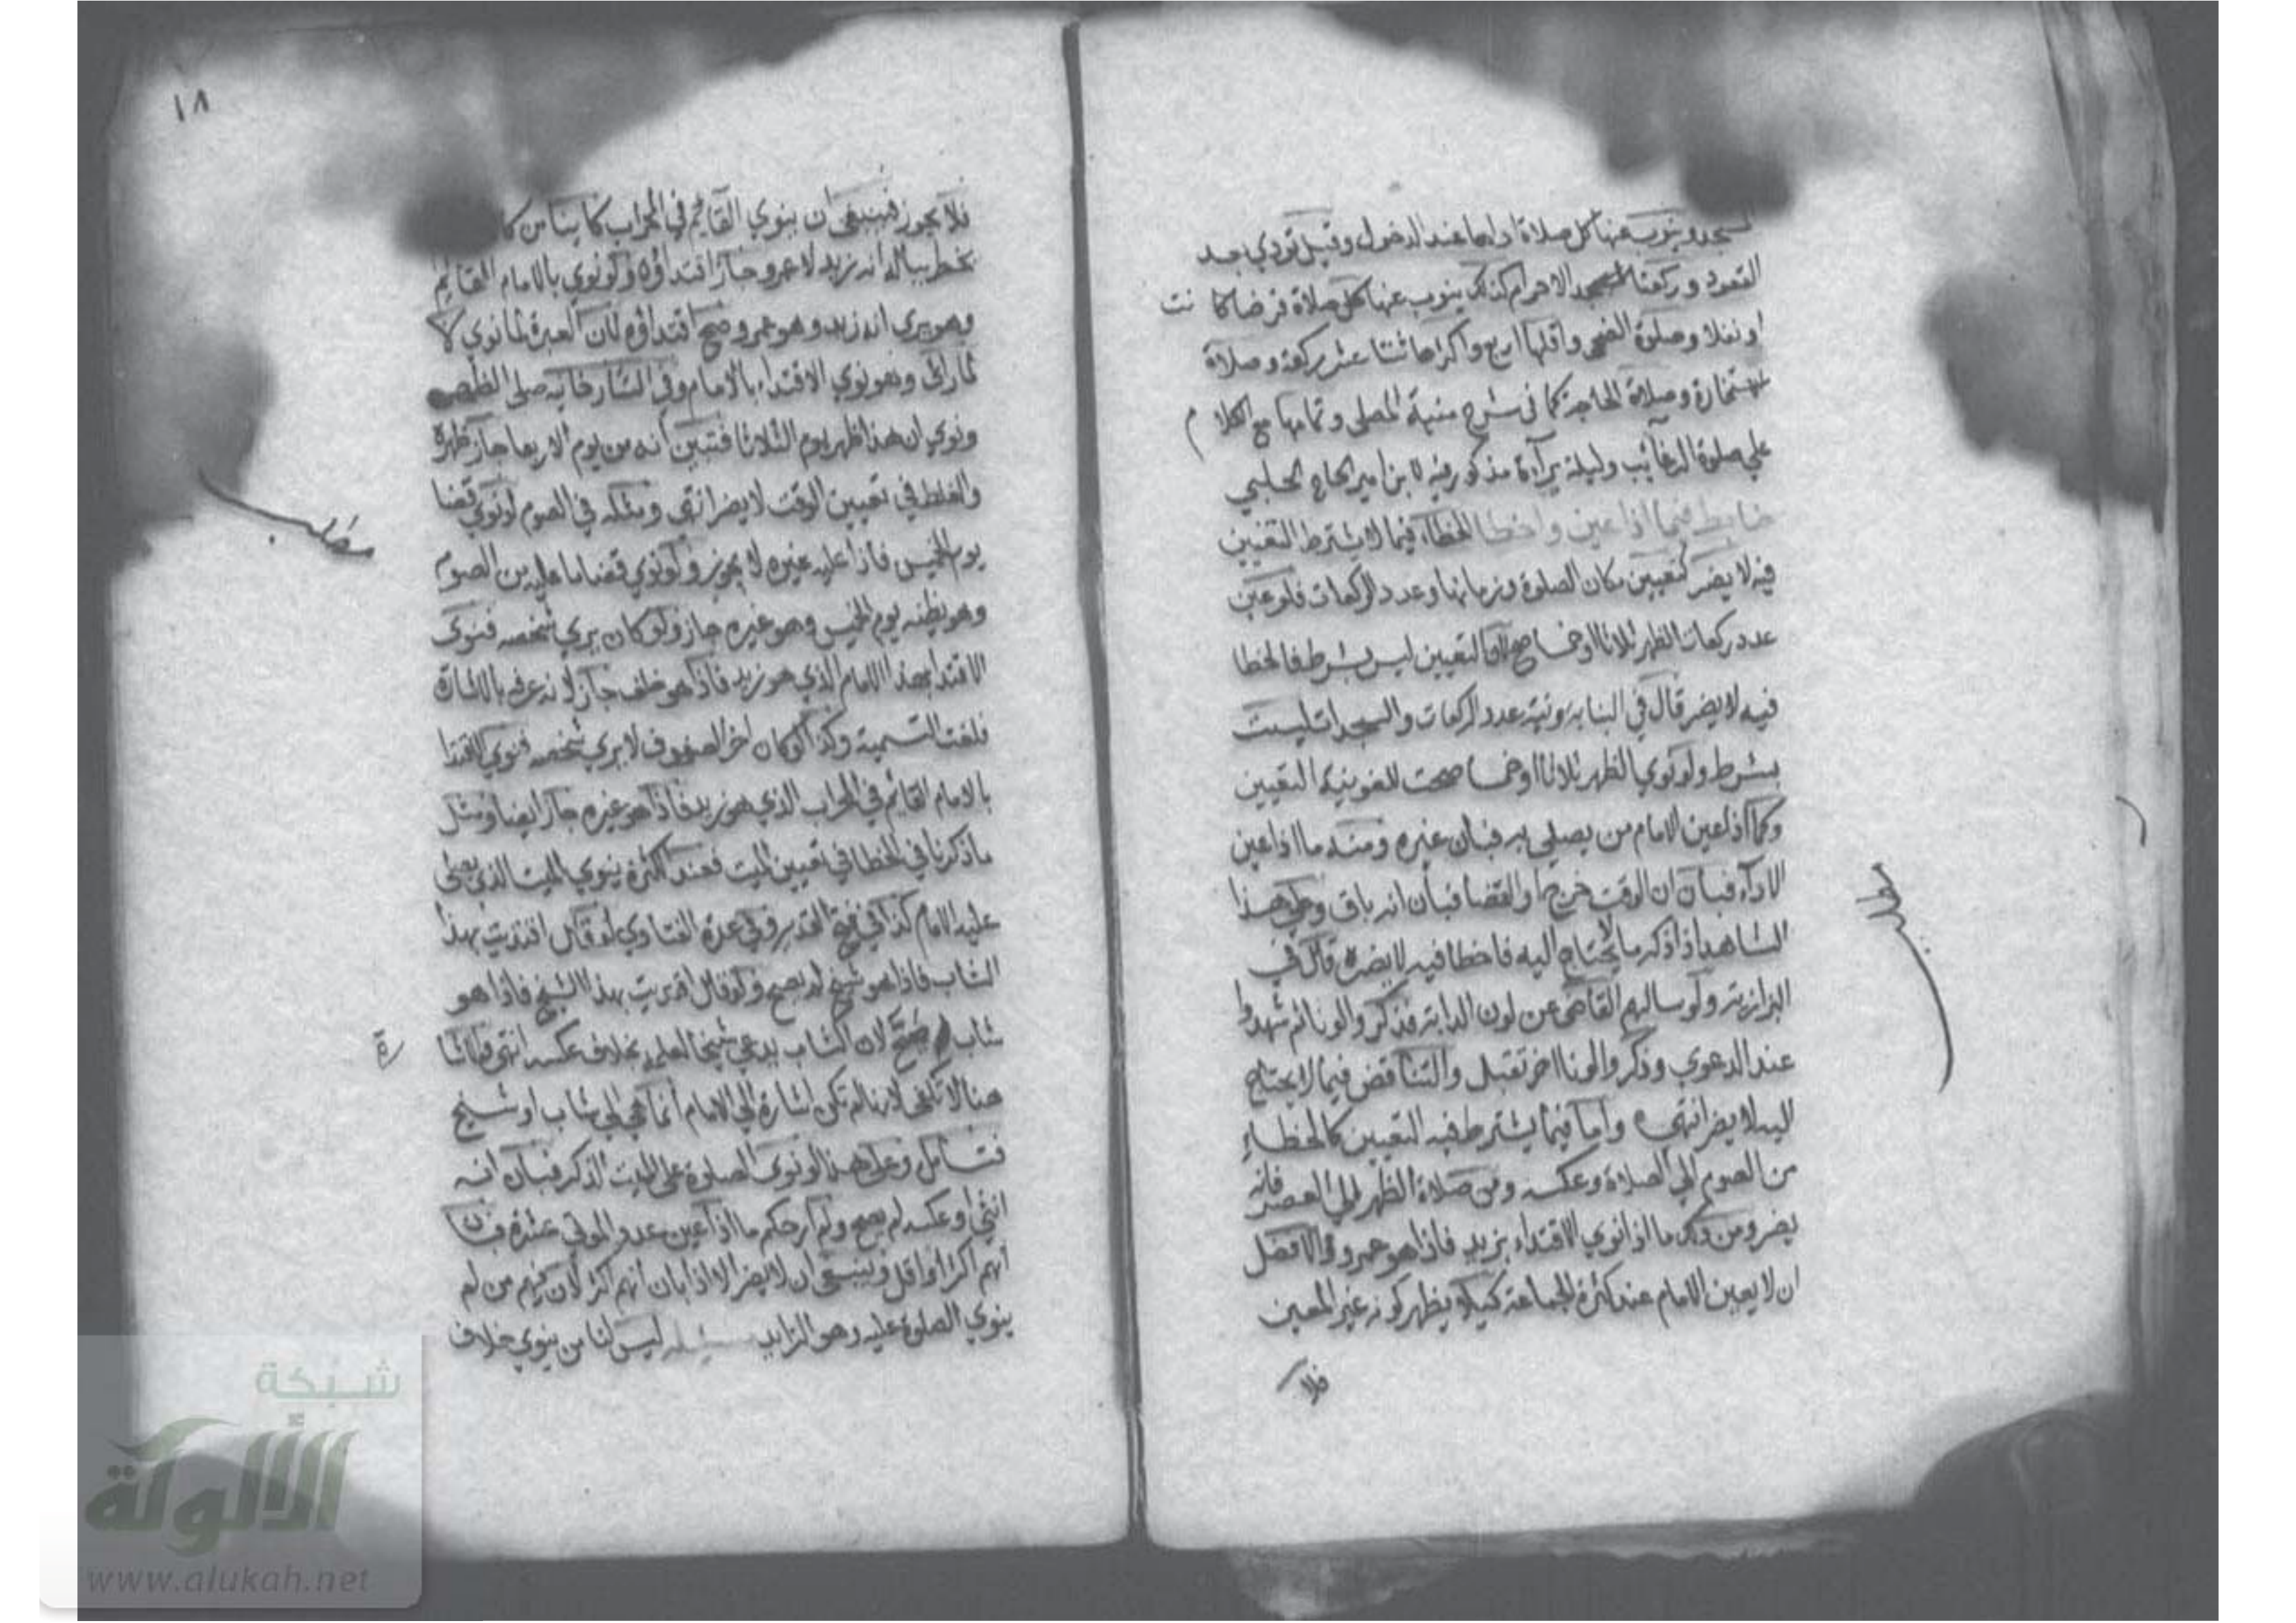 المسجد وينوب عنها كل صلاة اداها عند الدخول وقيل تودي بعد
القعود وركعتا الاحرام كذلك ينوب عنها كل صلاة فرضا كانت
او نفلا وصلوة الضحى واقلها اربع واكثرها ثنتا عشر ركعة وصلاة
الاستخارة وصلاة الحاجة كما في شرح منية المصلي وتمامها مع الكلام
علي صلوة الرغائب وليلة براءة مذكور فيه لابن امير الحاج الحلبي
ضابط فيما اذا عين واخطا الخطاء فيما لا يشترط التعيين
فيه لا يضر كتعيين مكان الصلوة وزمانها وعدد الركعات فلو عين
عدد ركعات الظهر ثلاثا او خمسا صح لان التعيين ليس بشرط فالخطا
فيه لا يضر قال في البناية ونية عدد الركعات والسجدات ليست
بشرط ولو نوي الظهر ثلاثا او خمسا صحت وتلغو نية التعيين
وكما اذا عين الامام من يصلي به فبان غيره ومنه ما اذا عين
الاداء فبان ان الوقت خرج او القضا فبان انه باق وعلي هذا
الشاهد اذا ذكر ما لا يحتاج اليه فاخطا فيه لا يضره قال في
البزازية ولو سالهم القاضي عن لون الدابة فذكروا لونا ثم شهدوا
عند الدعوي وذكروا لونا اخر تقبل والتناقض فيما لا يحتاج
اليه لا يضر انتهي واما فيما يشترط فيه التعيين كالخطاء
من الصوم الي الصلاة وعكسه ومن صلاة الظهر الي العصر فانه
يضر ومن ذلك ما اذا نوي الاقتداء بزيد فاذا هو عمرو والافضل
ان لا يعين الامام عند كثرة الجماعة كيلا يظهر كونه غير المعين
فلا
مطلب
١٨
فلا يجوز فينبغي ان ينوي القائم في المحراب كائنا من كا
يخطر بباله انه زيد او عمرو جاز اقتداؤه ولو نوي بالامام القايم
وهو يري انه زيد وهو عمرو صح اقتداؤه لان العبرة لما نوي لا
لما رائ وهو نوي الاقتداء بالامام وفي التتارخانية صلي الظهر
ونوي ان هذا ظهر يوم الثلاثا فتبين انه من يوم الاربعا جاز ظهره
والغلط في تعيين الوقت لا يضر انتهي ومثله في الصوم لو نوي قضا
يوم الخميس فاذا عليه غيره لا يجوز ولو نوي قضا ما عليه من الصوم
وهو يظنه يوم الخميس وهو غيره جاز ولو كان يري شخصه فنوي
الاقتدا بهذا الامام الذي هو زيد فاذا هو خلف جاز لانه عرفه بالاشارة
فلغت التسمية وكذا لو كان اخر الصفوف لا يري شخصه فنوي الاقتدا
بالامام القائم في المحراب الذي هو زيد فاذا هو غيره جاز ايضا ومثل
ما ذكرنا في الخطا في تعيين الميت فعند الكثرة ينوي الميت الذي يصلي
عليه الامام كذا في فتح القدير وفي عدة الفتاوي لو قال اقتديت بهذا
الشاب فاذا هو شيخ لم يصح ولو قال اقتديت بهذا الشيخ فاذا هو
شاب صح لان الشاب يدعي شيخا لعلمه بخلاف عكسه انتهي والاشا رة
هنا لا تكفي لانها لم تكن اشارة الي الامام انما هي الي شاب او شيخ
فتامل وعلي هذا لو نوي الصلوة علي الميت الذكر فبان انه
انثي او عكسه لم يصح ولم ار حكم ما اذا عين عدد الموتي عشرة فبان
انهم اكثر او اقل وينبغي ان لا يضر الا اذا بان انهم اكثر لان فيهم من لم
ينوي الصلوة عليه وهو الزايد مسئلة ليس لنا من ينوي خلاف
مطلب
شبكة
الألوكة
www.alukah.net